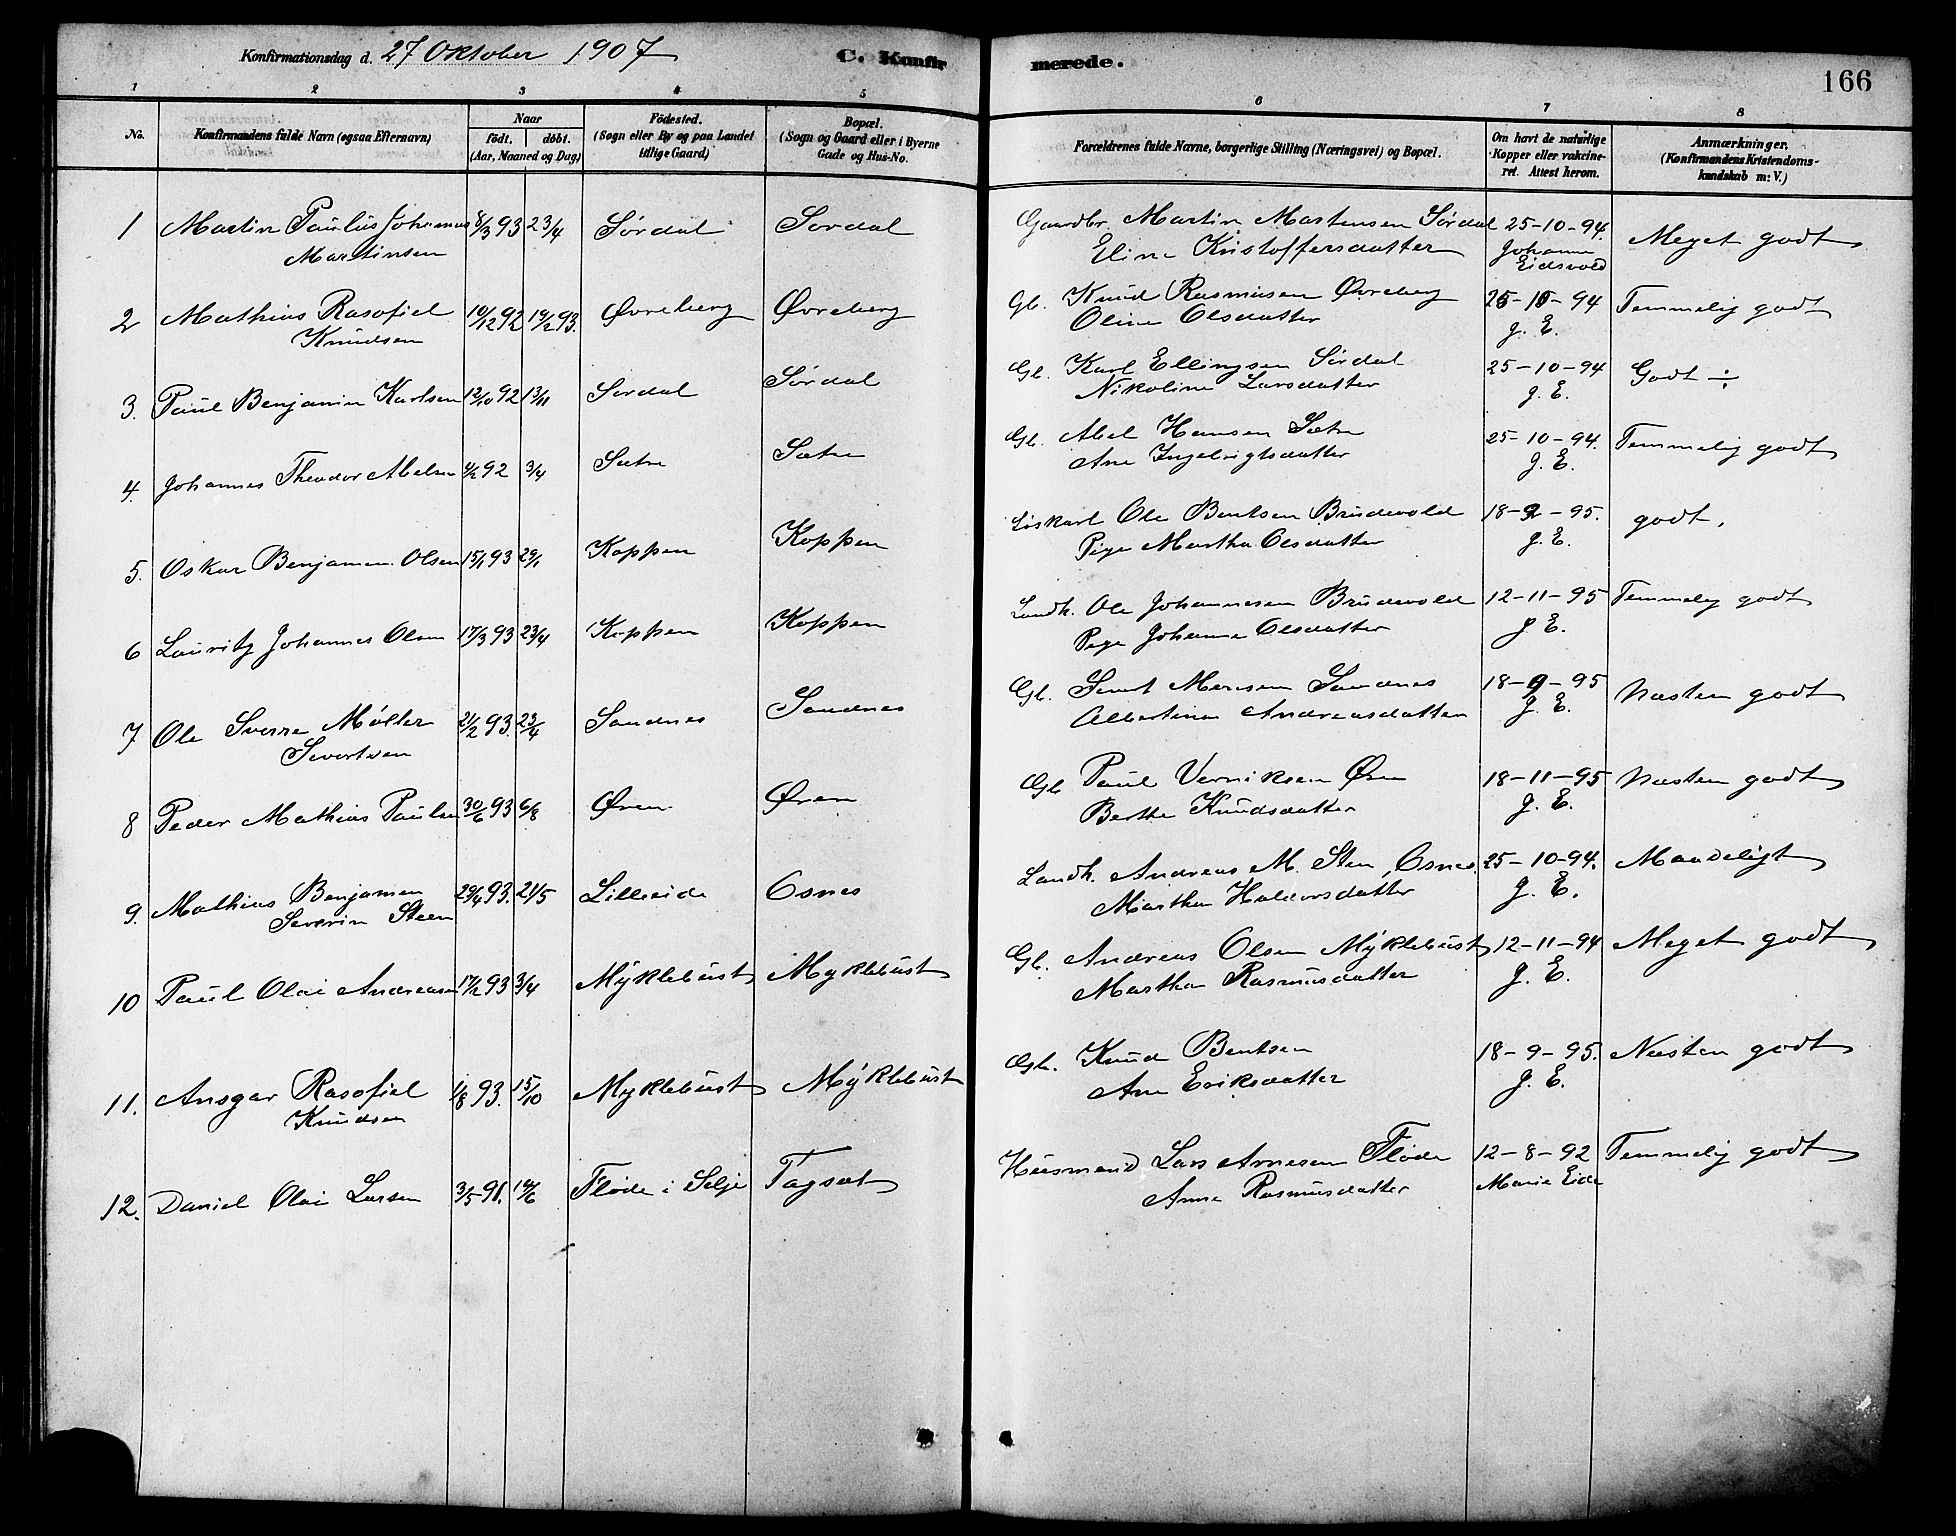 Konfirmationsdag d. 27 Oktober 1907
C. Konfirmerede.
166
1 2 3 4 5 6 7 8
No.
Konfirmandens fulde Navn (ogsaa Efternavn)
Naar
födt. döbt.
(Aar, Maaned og Dag)
Födested.
(Sogn eller By og paa Landet
tillige Gaard)
Bopæl.
(Sogn og Gaard eller i Byerne
Gade og Hus-No.
Forældrenes fulde Navne, borgerlige Stilling (Næringsvei) og Bopæl.
Om havt de naturlige
Kopper eller vakcine-
ret. Attest herom.
Anmærkninger.
(Konfirmandens Kristendoms-
kundskab m: V.)
1 Martin Paulus Johannes 8/3 93 23/4 Sördal Sördal Gaardbr. Martin Martensen Sördal 25-10-94. Meget godt
Martinsen Eline Kristoffersdatter Johanne
Eidsvold
2 Mathias Rasofiel 10/12 92 19/2 93. Øvreberg Øvreberg Gb. Knud Rasmusen Øvreberg 25-10-94 Temmelig godt
Knudsen Oline Olsdatter J. E.
3. Paul Benjamin Karlsen 12/10 92 13/11 Sördal Sördal Gb. Karl Ellingsen Sördal 25-10-94 Godt ÷
Nikoline Larsdatter J. E.
4. Johannes Theodor Abelsen 4/2 92 3/4 Sætre Sætre Gb. Abel Hansen Sætre 25-10-94. Temmelig godt
Ane Ingebrigtsdatter J. E.
5. Oskar Benjamin Olsen 15/1 93 29/1 Koppen Koppen Löskarl Ole Bentsen Brudevold 18-9-95. godt.
Pige Martha Olsdatter J. E.
6 Lauritz Johannes Olsen 17/3 93 23/4 Koppen Koppen Landh. Ole Johannesen Brudevold 12-11-95 Temmelig godt
Pige Johanne Olsdatter J. E.
7 Ole Sverre Möller 21/2 93. 23/4 Sandnes Sandnes Gb. Sivert Monsen Sandnes 18-9-95 Næsten godt
Sivertsen Albertine Andreasdatter J. E.
8 Peder Mathias Paulsen 30/6 93 6/8 Ören Ören Gb Paul Verniksen Øren 18-11-95 Næsten godt
Berthe Knudsdatter J. E.
9. Mathias Benjamin 29/4 93. 21/5 Lilleeide Osnes Landh. Andreas M. Sten, Osnes. 25-10-94. Maadeligt
Severin Steen Martha Haldorsdatter J. E.
10 Paul Olai Andreasen 17/2 93 3/4 Myklebust Myklebust Gb. Andreas Olsen Myklebust 12-11-94 Meget godt
Martha Rasmusdatter J. E.
11. Ansgar Rasofiel 1/8 93. 15/10 Myklebust Myklebust Gb. Knud Bentsen 18-9-95. Næsten godt
Knudsen Ane Eriksdatter J. E.
12. Daniel Olai Larsen 3/5 91. 14/6 Flöde i Selje Tagsæt Husmand Lars Arnesen Flöde 12-8-92 Temmelig godt
Anne Rasmusdatter Marie Eide